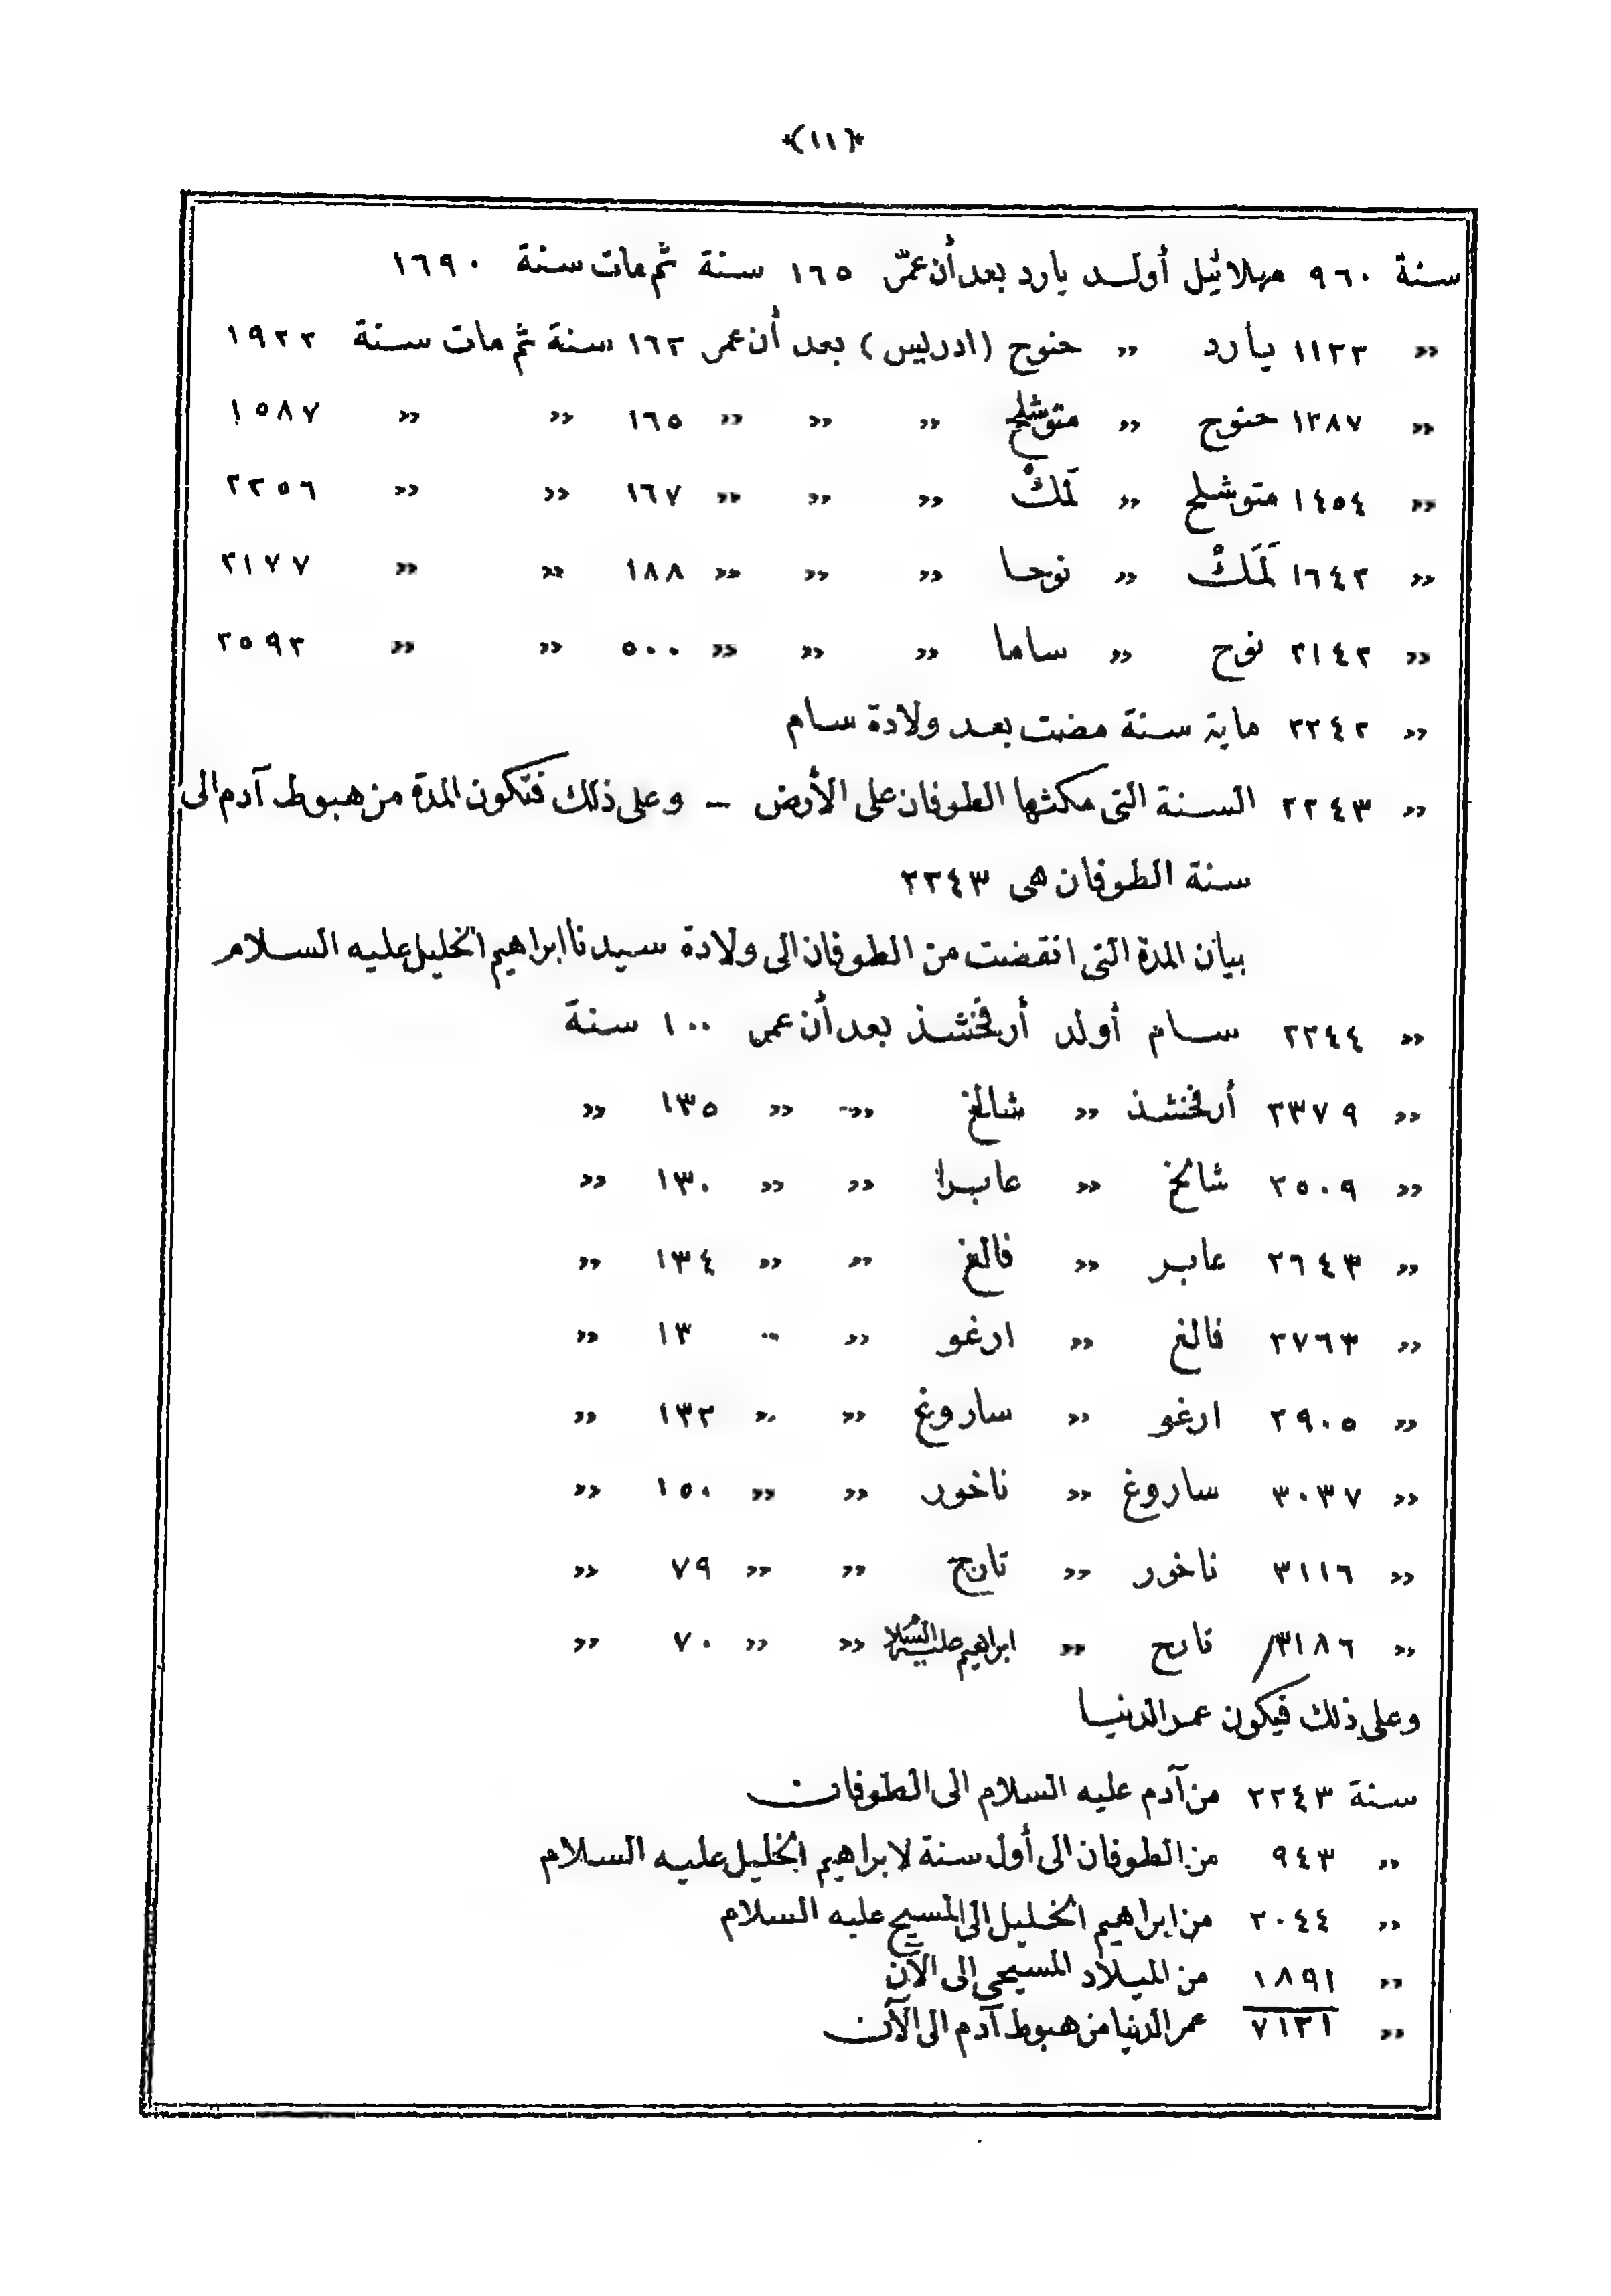 ﴿(١١)﴾
سنة ٩٦٠ مهلائيل أولد يارد بعد أن عمّر ١٦٥ سنة ثم مات سنة ١٦٩٠
” ١١٢٢ يارد ” حنوج (ادريس) بعد أن عمر ١٦٢ سنة ثم مات سنة ١٩٢٢
” ١٢٨٧ حنوج ” متوشلح ” ” ” ١٦٥ ” ” ١٥٨٧
” ١٤٥٤ متوشلح ” لَمَكْ ” ” ” ١٦٧ ” ” ٢٢٥٦
” ١٦٤٢ لَمَكْ ” نوحا ” ” ” ١٨٨ ” ” ٢١٧٧
” ٢١٤٢ نوح ” ساما ” ” ” ٥٠٠ ” ” ٢٥٩٢
” ٢٢٤٢ ماية سنة مضت بعد ولادة سام
” ٢٢٤٣ السنة التى مكثها الطوفان على الأرض – وعلى ذلك فتكون المدة من هبوط آدم الى
سنة الطوفان هى ٢٢٤٣
بيان المدة التى انقضت من الطوفان الى ولادة سيدنا ابراهيم الخليل عليه السلام
” ٢٢٤٤ سام أولد أرفخشذ بعد أن عمر ١٠٠ سنة
” ٢٣٧٩ أرفخشذ ” شالخ ” ” ١٣٥ ”
” ٢٥٠٩ شالخ ” عابرا ” ” ١٣٠ ”
” ٢٦٤٣ عابر ” فالغ ” ” ١٣٤ ”
” ٢٧٦٣ فالغ ” ارغو ” ” ١٣ ”
” ٢٩٠٥ ارغو ” ساروغ ” ” ١٣٢ ”
” ٣٠٣٧ ساروغ ” ناخور ” ” ١٥٠ ”
” ٣١١٦ ناخور ” تارح ” ” ٧٩ ”
” ٣١٨٦ تارح ” ابراهيم عليه السلام ” ” ٧٠ ”
وعلى ذلك فيكون عمر الدنيا
سنة ٢٢٤٣ من آدم عليه السلام الى الطوفان
” ٩٤٣ من الطوفان الى أول سنة لابراهيم الخليل عليه السلام
” ٢٠٤٤ من ابراهيم الخليل الى المسيح عليه السلام
” ١٨٩١ من الميلاد المسيحى الى الآن
” ٧١٢١ عمر الدنيا من هبوط آدم الى الآن